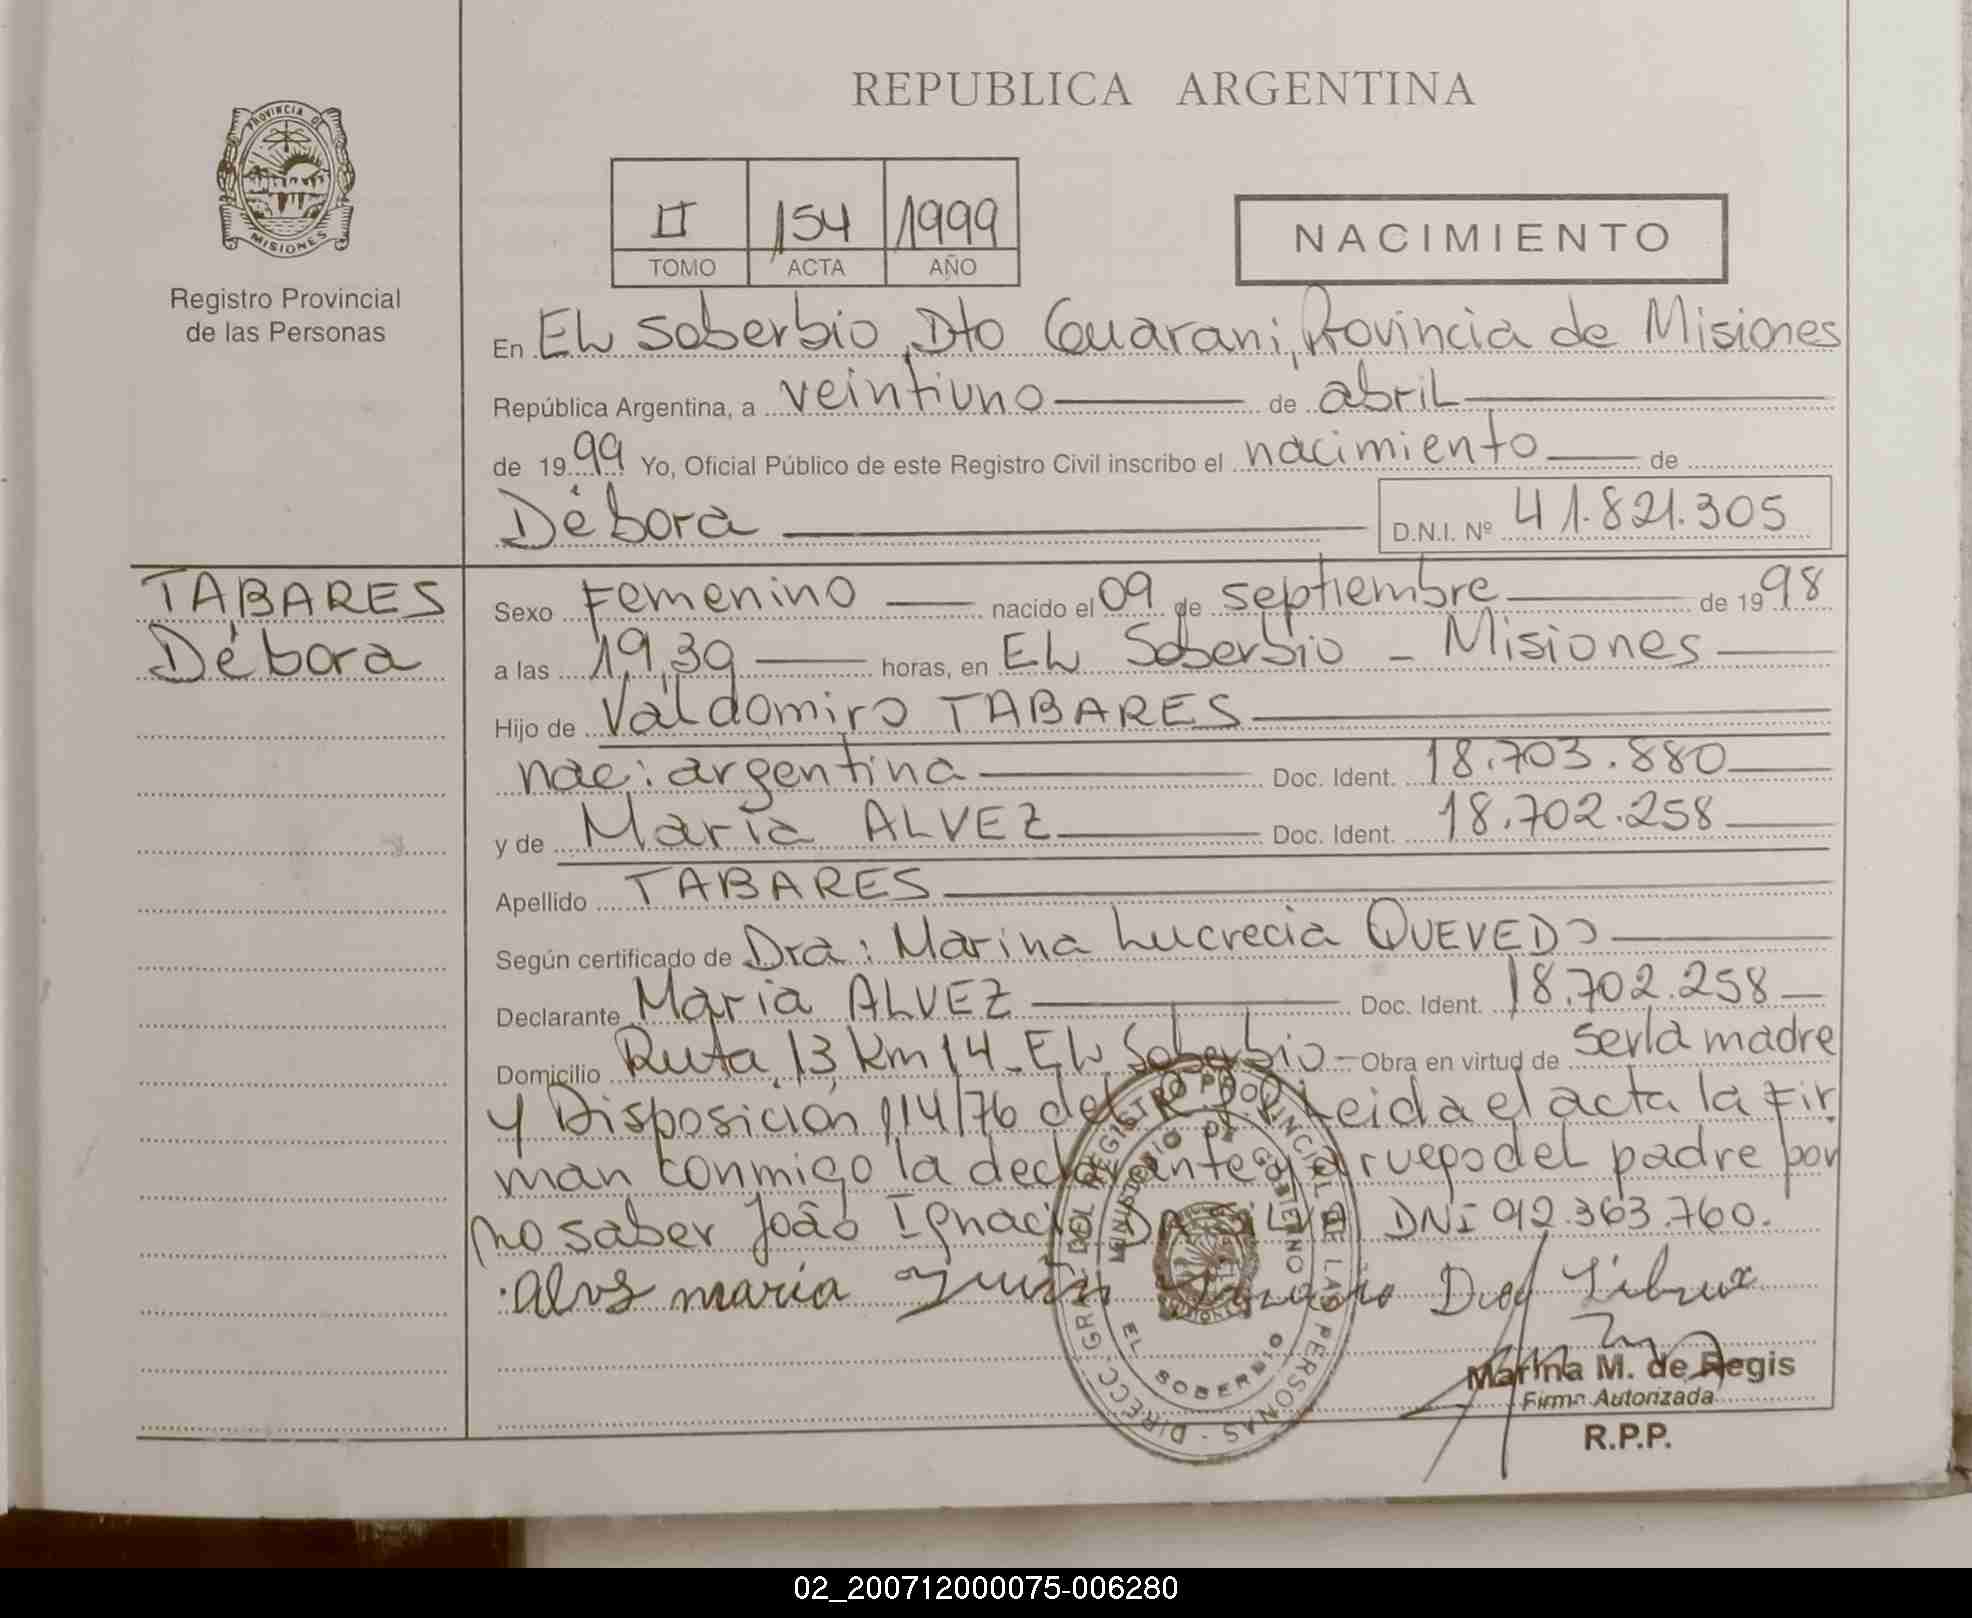 REPUBLICA ARGENTINA
PROVINCIA DE
MISIONES
Registro Provincial
de las Personas
II 154 1999
TOMO ACTA AÑO
NACIMIENTO
En EL Soberbio, Dto Guarani, Provincia de Misiones
República Argentina, a veintiuno de abril
de 1999 Yo, Oficial Público de este Registro Civil inscribo el nacimiento de
Débora D.N.I. Nº 41.821.305
TABARES
Débora
Sexo Femenino nacido el 09 de septiembre de 1998
a las 19,39 horas, en EL Soberbio - Misiones
Hijo de Valdomiro TABARES
nac: argentina Doc. Ident. 18.703.880
y de María ALVEZ Doc. Ident. 18.702.258
Apellido TABARES
Según certificado de Dra: Marina Lucrecia QUEVEDO
Declarante Maria ALVEZ Doc. Ident. 18.702.258
Domicilio Ruta 13 Km 14 - EL Soberbio - Obra en virtud de ser la madre
y Disposición 114/76 del R.P.P. Leida el acta la Fir
man conmigo la declarante y a ruego del padre por
no saber João Ignacio DA SILVA DNI 92.363.760.
alvs maria
DIRECC. GRAL. DEL REGISTRO PROVINCIAL DE LAS PERSONAS
MINISTERIO DE GOBIERNO
EL SOBERBIO
Marina M. de Regis
Firma Autorizada
R.P.P.
02_200712000075-006280